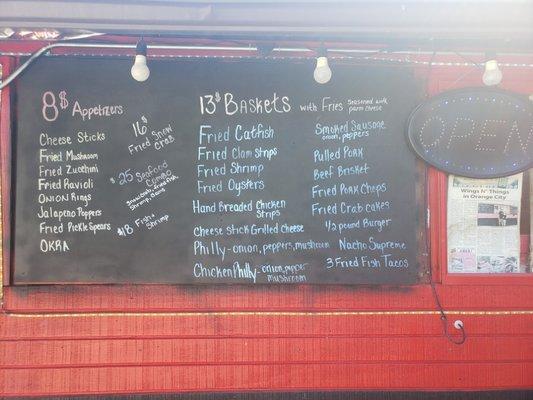 8$ Appetizers
Cheese Sticks
Fried Mushroom
Fried Zucchini
Fried Ravioli
Onion Rings
Jalapeno Poppers
Fried Pickle Spears
OKRA
16$
Fried Snow
Crab
$25 Seafood
Combo
Shrimp,
$18 Fish &
Shrimp
13$ Baskets with Fries Seasoned with
parm cheese
Fried Catfish
Fried Clam Strips
Fried Shrimp
Fried Oysters
Hand Breaded Chicken
Strips
Cheese stick Grilled Cheese
Philly-onion, peppers, mushroom
Chicken Philly-onion, pepper
mushroom
Smoked Sausage
onion, peppers
Pulled Pork
Beef Brisket
Fried Pork Chops
Fried Crab cakes
1/2 pound Burger
Nacho Supreme
3 Fried Fish Tacos
OPEN
Wings n' Things
in Orange City